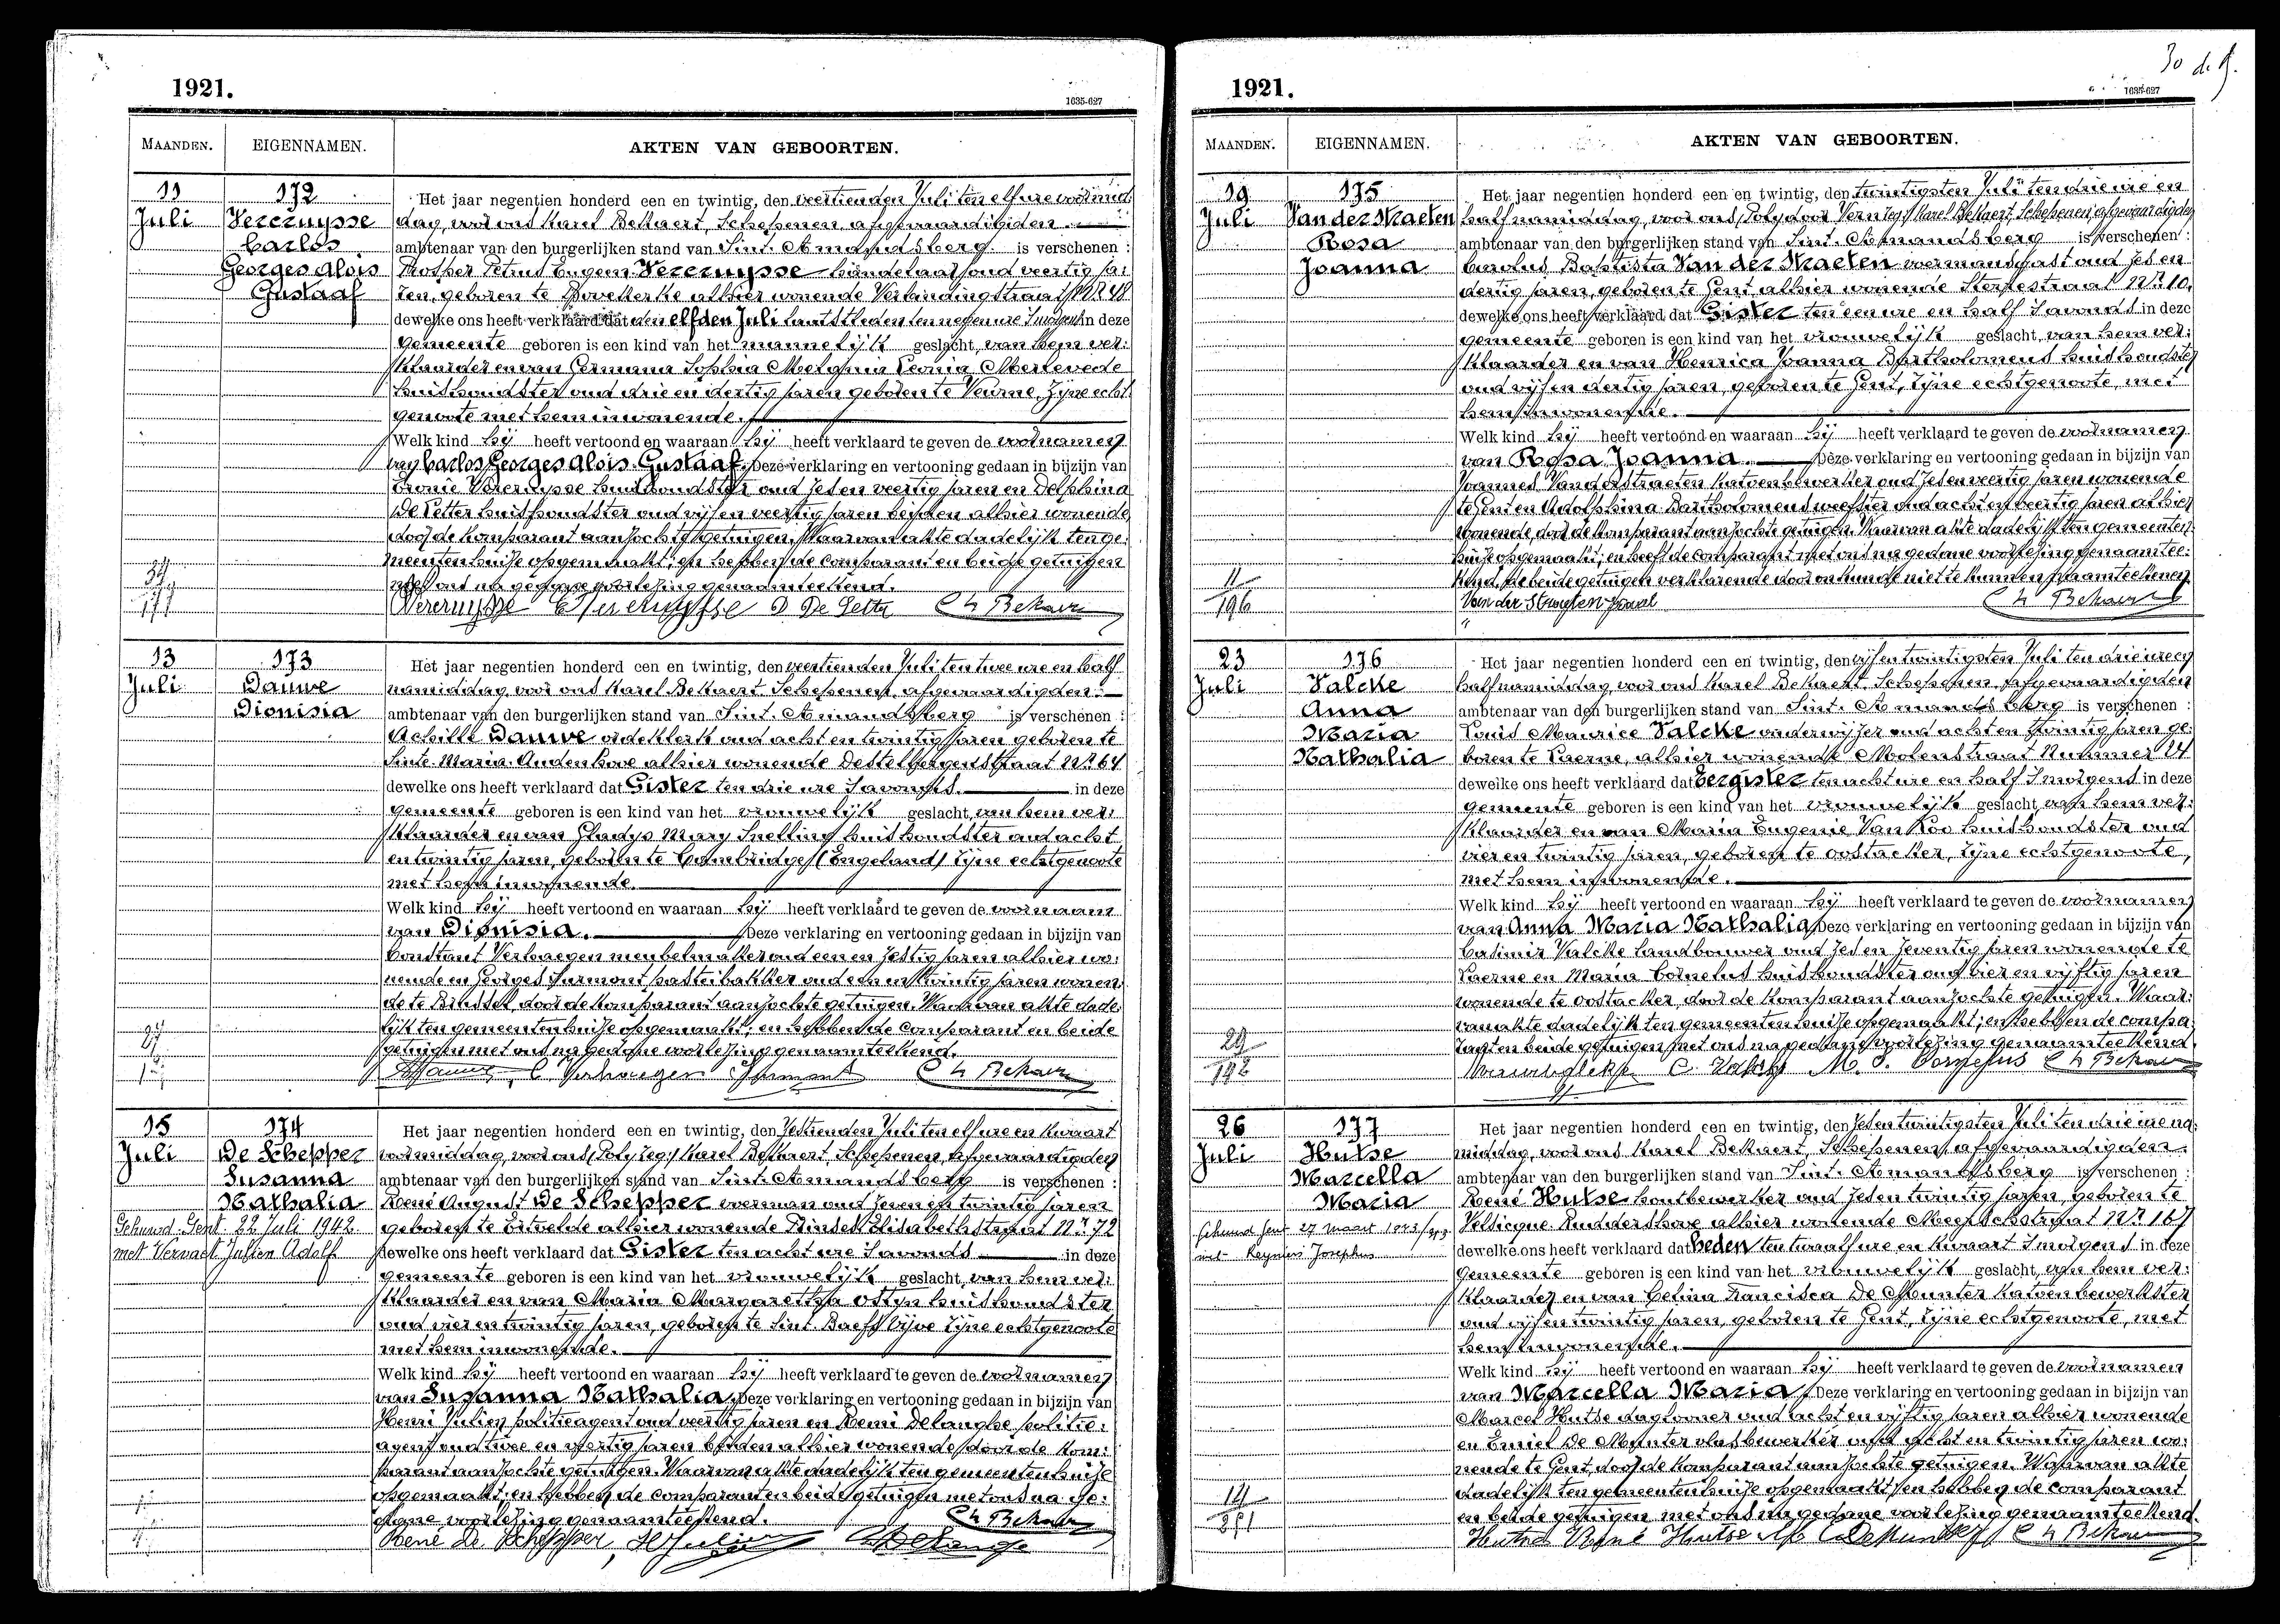 1921.
1635-627
MAANDEN.
EIGENNAMEN.
AKTEN VAN GEBOORTEN.
11
Juli
172
Vercruysse
Carlos
Georges Alois
Gustaaf
Het jaar negentien honderd een en twintig, den veertienden Juli ten elf ure voormid
dag, voor ons Karel Bekaert, Schepenen afgevaardigden
ambtenaar van den burgerlijken stand van Sint-Amandsberg is verschenen :
Prosper Petrus Eugeen Vercruysse handelaar oud veertig ja:
ren, geboren te Bovekerke alhier wonende Verlandingstraat Nr 48
dewelke ons heeft verklaard dat den elfden Juli laatstleden ten negen ure 's morgens in deze
gemeente geboren is een kind van het mannelijk geslacht, van hem ver:
klaarder en van Germana Sophia Melania Leonia Merlevede
huishoudster oud drie en dertig jaren geboren te Veurne, zijne echt
genoote met hem inwonende.
Welk kind hij heeft vertoond en waaraan hij heeft verklaard te geven de voornamen
van Carlos Georges Alois Gustaaf. Deze verklaring en vertooning gedaan in bijzijn van
Vercruysse huishoudster oud zes en veertig jaren en Delphina
De Setter huishoudster oud vijf en veertig jaren beyden alhier wonende
door de komparant aanzochte getuigen. Waarvan akte dadelijk ten ge:
meentenhuize opgemaakt; en hebben de comparant en beide getuigen
met ons na gedane voorlezing genaamteekend.
Vercruysse D De Setter Ch Bekaert
13
Juli
173
Dauwe
Dionisia
Het jaar negentien honderd een en twintig, den veertienden Juli ten twee ure en half
namiddag, voor ons Karel Bekaert Schepenen, afgevaardigden
ambtenaar van den burgerlijken stand van Sint-Amandsberg is verschenen :
Achille Dauwe ordeklerk oud acht en twintig jaren geboren te
Sinte-Maria-Audenhove alhier wonende Destelbergenstraat Nr 64
dewelke ons heeft verklaard dat Gister ten drie ure 's avonds. in deze
gemeente geboren is een kind van het vrouwelijk geslacht, van hem ver:
klaarder en van Gladys Mary Snelling huishoudster oud acht
en twintig jaren, geboren te Cambridge (Engeland) zijne echtgenoote
met hem inwonende.
Welk kind hij heeft vertoond en waaraan hij heeft verklaard te geven de voornaam
van Dionisia. Deze verklaring en vertooning gedaan in bijzijn van
Constant Verhaegen meubelmaker oud een en zestig jaren alhier wo:
nende en Georges Surmont pasteibakker oud een en twintig jaren wonen
de te Brussel, door de komparant aanzochte getuigen. Waarvan akte dade
lijk ten gemeentenhuize opgemaakt; en hebben de comparant en beide
getuigen met ons na gedane voorlezing genaamteekend.
C Verhaegen Surmont Ch Bekaert
15
Juli
174
De Schepper
Susanna
Nathalia
Gehuwd Gent 22 Juli 1942
met Vervaet Julien Adolf
Het jaar negentien honderd een en twintig, den zestienden Juli ten elf ure en kwaart
voormiddag, voor ons (Poly zeg:) Karel Bekaert, Schepenen, afgevaardigden
ambtenaar van den burgerlijken stand van Sint-Amandsberg is verschenen :
René August De Schepper voerman oud zeven en twintig jaren
geboren te Ertvelde alhier wonende Prinses Elisabethstraat Nr 72
dewelke ons heeft verklaard dat Gister ten acht ure 's avonds in deze
gemeente geboren is een kind van het vrouwelijk geslacht, van hem ver:
klaarder en van Maria Margaretha Ostyn huishoudster
oud vier en twintig jaren, geboren te Sint-Baefs-Vijve zijne echtgenoote
met hem inwonende.
Welk kind hij heeft vertoond en waaraan hij heeft verklaard te geven de voornamen
van Susanna Nathalia. Deze verklaring en vertooning gedaan in bijzijn van
Henri Julien politieagent oud veertig jaren en Remi Delanghe politie:
agent oud twee en veertig jaren beyden alhier wonende, door de kom:
parant aanzochte getuigen. Waarvan akte dadelijk ten gemeentenhuize
opgemaakt; en hebben de comparant en beide getuigen met ons na ge:
dane voorlezing genaamteekend. Ch Bekaert
René De Schepper, H Julien Delanghe
30
1921.
1635-627
MAANDEN.
EIGENNAMEN.
AKTEN VAN GEBOORTEN.
19
Juli
175
Van der Straeten
Rosa
Joanna
11
196
Het jaar negentien honderd een en twintig, den twintigsten Juli ten drie ure en
half namiddag, voor ons, Karel Bekaert Schepenen afgevaardigden
ambtenaar van den burgerlijken stand van Sint-Amandsberg is verschenen :
Carolus Baptista Van der Straeten voermansgast oud zes en
dertig jaren, geboren te Gent alhier wonende Sterrestraat Nr 10.
dewelke ons heeft verklaard dat Gister ten een ure en half 's avonds in deze
gemeente geboren is een kind van het vrouwelijk geslacht, van hem ver:
klaarder en van Henrica Joanna Bartholomeus huishoudster
oud vijf en dertig jaren, geboren te Gent, zijne echtgenoote, met
hem inwonende.
Welk kind hij heeft vertoond en waaraan hij heeft verklaard te geven de voornamen
van Rosa Joanna. Deze verklaring en vertooning gedaan in bijzijn van
Joannes Van der Straeten katoenbewerker oud zes en veertig jaren wonende
te Gent en Adolphina Bartholomeus weefster oud acht en veertig jaren alhier
wonende door de komparant aanzochte getuigen. Waarvan akte dadelijk ten gemeenten:
huize opgemaakt; en heeft de comparant met ons na gedane voorlezing genaamtee:
kend, de beide getuigen verklarende door onkunde niet te kunnen naamteekenen.
Van der Straeten Karel Ch Bekaert
23
Juli
176
Valcke
Anna
Maria
Nathalia
29
198
Het jaar negentien honderd een en twintig, den vijf en twintigsten Juli ten drie ure en
half namiddag, voor ons Karel Bekaert Schepenen, afgevaardigden
ambtenaar van den burgerlijken stand van Sint-Amandsberg is verschenen :
Louis Maurice Valcke onderwijzer oud acht en twintig jaren ge:
boren te Laerne, alhier wonende Molenstraat Nummer 24
dewelke ons heeft verklaard dat eergister ten acht ure en half 's morgens in deze
gemeente geboren is een kind van het vrouwelijk geslacht, van hem ver:
klaarder en van Maria Eugenie Van Loo huishoudster oud
vier en twintig jaren, geboren te Oostacker, zijne echtgenoote,
met hem inwonende.
Welk kind hij heeft vertoond en waaraan hij heeft verklaard te geven de voornamen
van Anna Maria Nathalia. Deze verklaring en vertooning gedaan in bijzijn van
Casimir Valcke landbouwer oud zes en zeventig jaren wonende te
Laerne en Maria Cornelus huishoudster oud vier en vijftig jaren
wonende te Oostacker, door de komparant aanzochte getuigen. Waar:
van akte dadelijk ten gemeentenhuize opgemaakt; en hebben de compa
rant en beide getuigen met ons na gedane voorlezing genaamteekend.
C. Valcke M. S. Cornelus Ch Bekaert
26
Juli
177
Hutse
Marcella
Maria
Gehuwd Gent 27 Maart 1943
met Reyniers Josephus
Het jaar negentien honderd een en twintig, den zes en twintigsten Juli ten drie ure na:
middag, voor ons Karel Bekaert, Schepenen, afgevaardigden
ambtenaar van den burgerlijken stand van Sint-Amandsberg is verschenen :
René Hutse houtbewerker oud zes en twintig jaren, geboren te
Velsicque-Ruddershove alhier wonende Meerschstraat Nr 167
dewelke ons heeft verklaard dat heden ten twaalf ure en kwaart 's morgens in deze
gemeente geboren is een kind van het vrouwelijk geslacht, van hem ver:
klaarder en van Celina Francisca De Munter katoenbewerkster
oud vijf en twintig jaren, geboren te Gent, zijne echtgenoote, met
hem inwonende.
Welk kind hij heeft vertoond en waaraan hij heeft verklaard te geven de voornamen
van Marcella Maria. Deze verklaring en vertooning gedaan in bijzijn van
Marcel Hutse daglooner oud acht en vijftig jaren alhier wonende
en Emiel De Munter vlasbewerker oud acht en twintig jaren wo:
nende te Gent, door de komparant aanzochte getuigen. Waarvan akte
dadelijk ten gemeentenhuize opgemaakt; en hebben de comparant
en beide getuigen met ons na gedane voorlezing genaamteekend.
Hutse René Hutse De Munter Ch Bekaert